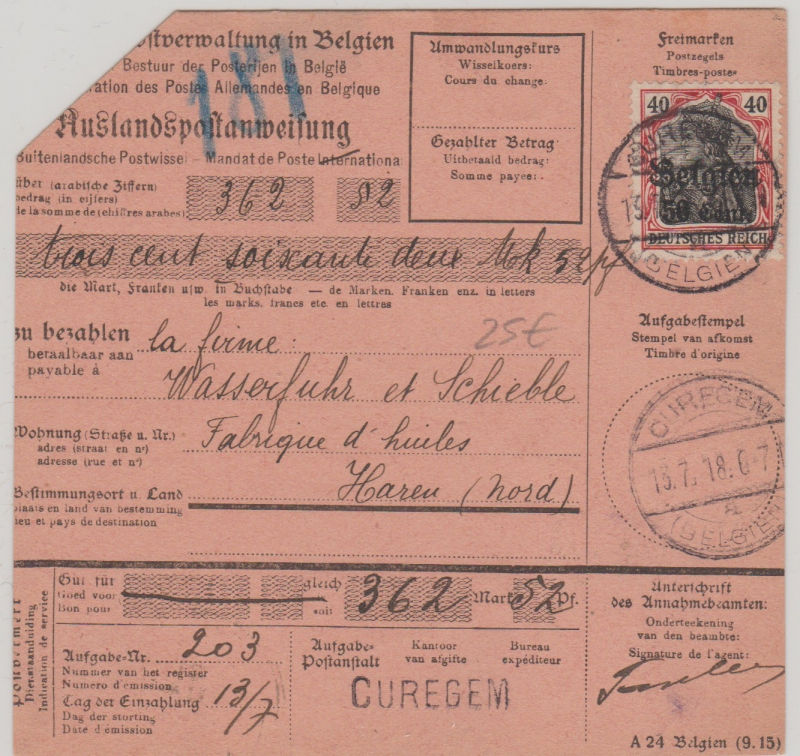 ostverwaltung in Belgien
Bestuur der Posterijen in België
ration des Postes Allemandes en Belgique
181
Auslandspostanweisung
Buitenlandsche Postwissel - Mandat de Poste International
über (arabische Ziffern)
bedrag (in cijfers)
de la somme de (chiffres arabes)
362 52
trois cent soixante deux Mk 52 pf
die Mark, Franken usw. in Buchstabe — de Marken, Franken enz. in letters
les marks, francs etc. en lettres
zu bezahlen
betaalbaar aan
payable à
la firme:
25€
Wasserfuhr et Schieble
Wohnung (Straße u. Nr.)
adres (straat en nr)
adresse (rue et nr)
Fabrique d'huiles
Haren (Nord)
Bestimmungsort u. Land
plaats en land van bestemming
lieu et pays de destination
Umwandlungskurs
Wisselkoers:
Cours du change:
Gezahlter Betrag:
Uitbetaald bedrag:
Somme payée:
Freimarken
Postzegels
Timbres-poste
40 40
Belgien
50 Cent.
DEUTSCHES REICH
CUREGEM
(BELGIEN)
Aufgabestempel
Stempel van afkomst
Timbre d'origine
CUREGEM
13.7.18.6-7
a
(BELGIEN)
Postvermerk
Dienstaanduiding
Indication de service
Gut für
Goed voor
Bon pour
gleich
soit
362 Mark 52 Pf.
Aufgabe-Nr. 203
Nummer van het register
Numéro d'émission
Tag der Einzahlung 13/7
Dag der storting
Date d'émission
Aufgabe-Postanstalt
Kantoor van afgifte
Bureau expéditeur
CUREGEM
Unterschrift
des Annahmebeamten:
Onderteekening
van den beambte:
Signature de l'agent:
A 24 Belgien (9.15)